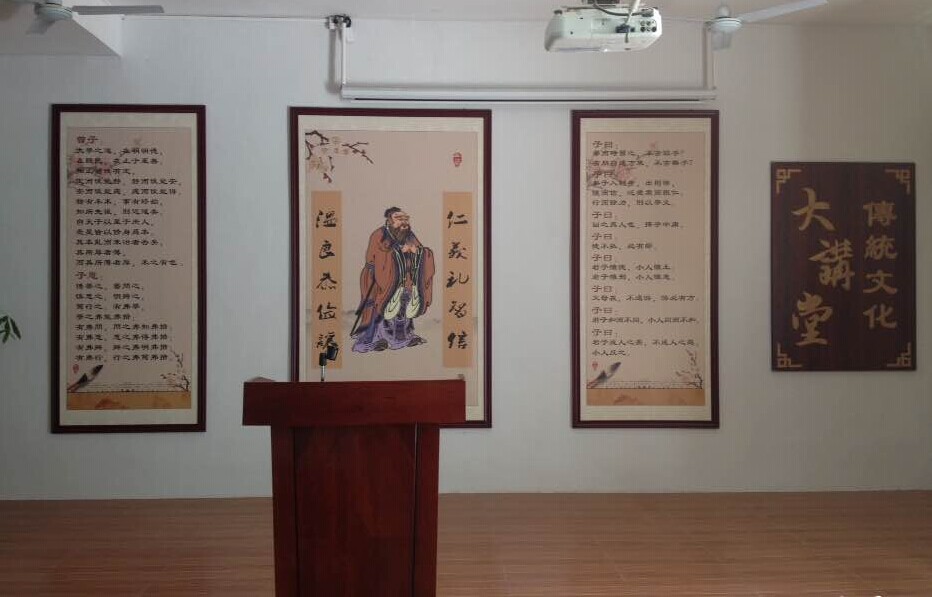 曾子：
大学之道，在明明德，
在亲民，在止于至善。
知止而后有定，
定而后能静，静而后能安，
安而后能虑，虑而后能得，
物有本末，事有终始，
知所先后，则近道矣。
自天子以至于庶人，
壹是皆以修身为本。
其本乱而末治者否矣，
其所厚者薄，
而其所薄者厚，未之有也。
子思：
博学之，审问之，
慎思之，明辨之，
笃行之。有弗学，
学之弗能弗措；
有弗问，问之弗知弗措；
有弗思，思之弗得弗措；
有弗辨，辨之弗明弗措；
有弗行，行之弗笃弗措。
仁義礼智信
温良恭俭讓
子曰：
学而时习之，不亦说乎？
有朋自远方来，不亦乐乎？
子曰：
弟子入则孝，出则悌，
谨而信，泛爱众而亲仁。
行有余力，则以学文。
子曰：
回之为人也，择乎中庸。
子曰：
德不孤，必有邻。
子曰：
君子怀德，小人怀土；
君子怀刑，小人怀惠。
子曰：
父母在，不远游，游必有方。
子曰：
君子和而不同，小人同而不和。
子曰：
君子成人之美，不成人之恶。
小人反之。
傳統文化
大講堂